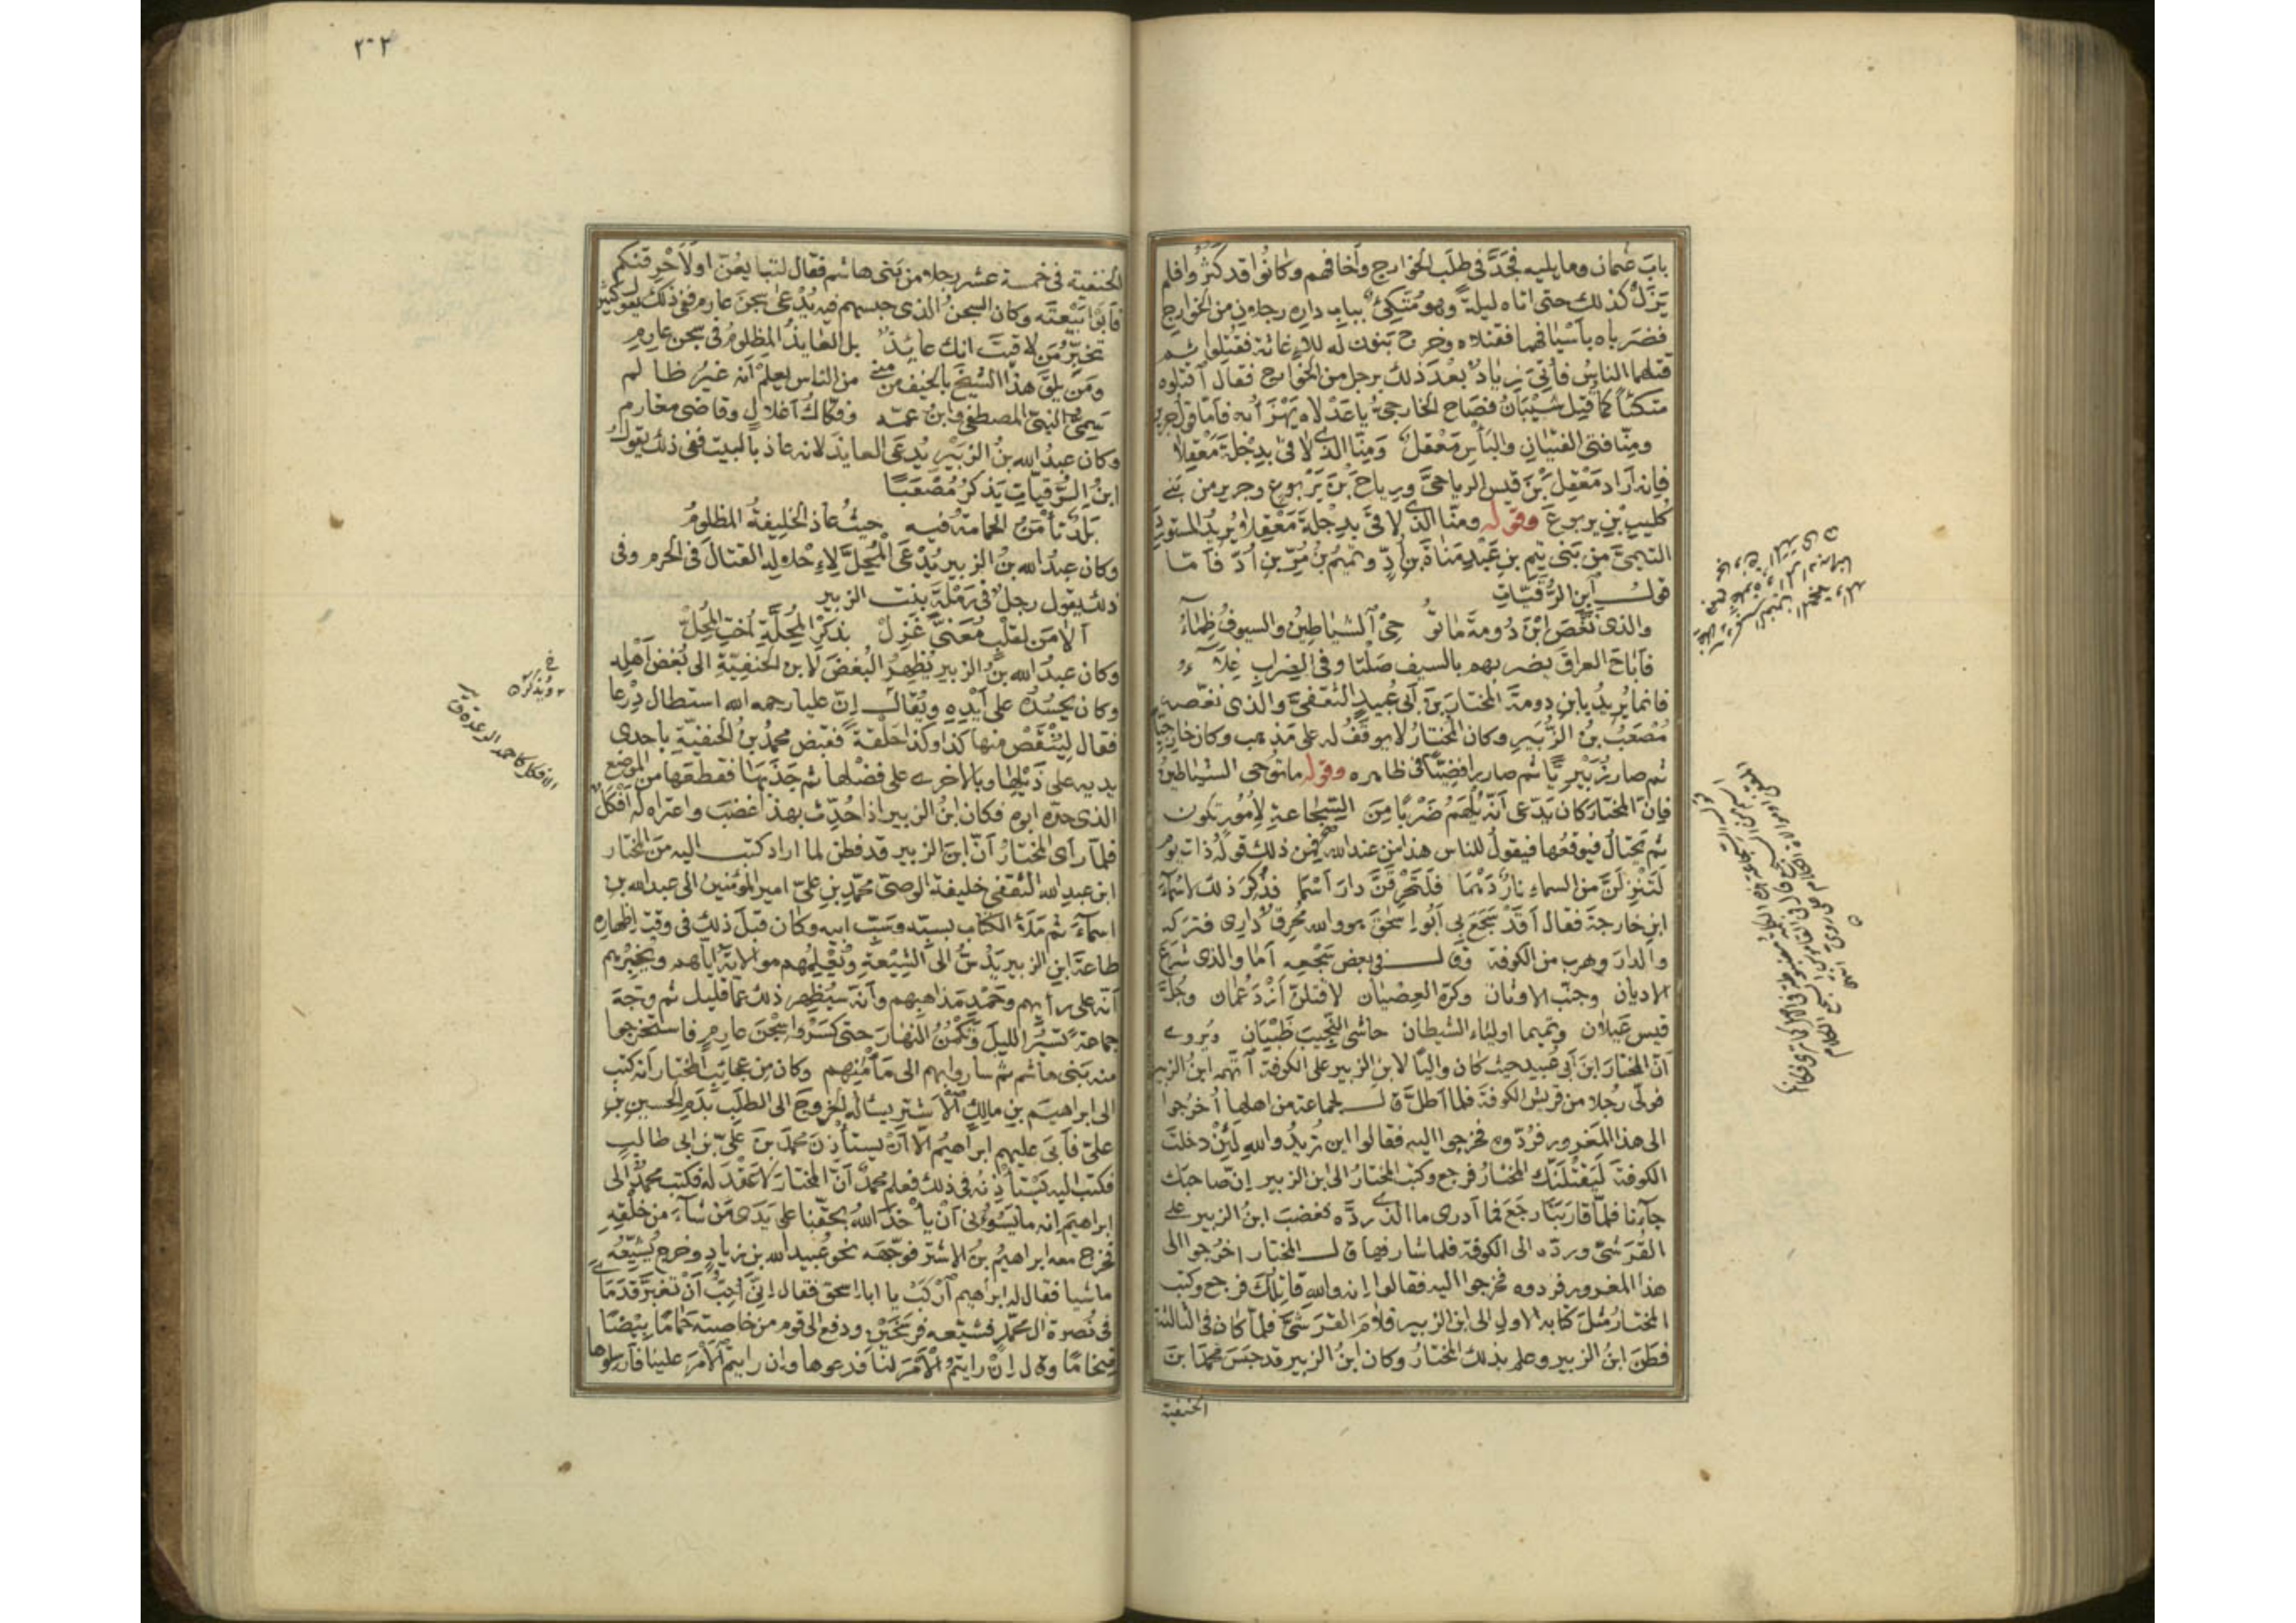 باب عثمان وما يليه فجدّ في طلب الخوارج وأخافهم وكانوا قد كثروا فلم
يزل كذلك حتى اتاه ليلة وهو متكئ بباب داره رجلان من الخوارج
فضرباه بأسيافهما فقتلاه وخرج بنون له للاغاثة فقتلوا ثم
قتلهما الناس فأتي زياد بعد ذلك برجل من الخوارج فقال اقتلوه
متكئا كما قتل شيبان فصاح الخارجي يا عدلاه يهزأ به فاما قول جرير
ومنا فتى الفتيان والبأس معقل ومنا الذي لاقى بدجلة معقلا
فانه أراد معقل بن قيس الرياحي ورياح بن يربوع وجرير من بني
كليب بن يربوع وقوله ومنا الذي لاقى بدجلة معقلا يريد المستورد
التيمي من بني تيم بن عبد مناة بن أد وتميم بن مر بن أد فأما
قول ابن الرقيات
والذي نغص ابن دومة ما تو حي الشياطين والسيوف ظماء
فأباح العراق يضربهم بالسيف صلتا وفي الضراب غلاء
فانما يريد بابن دومة المختار بن أبي عبيد الثقفي والذي نغصه
مصعب بن الزبير وكان المختار لا يوقف له على مذهب وكان خارجيا
ثم صار زبيريا ثم صار رافضيا في ظاهره وقوله ما توحى الشياطين
فإن المختار كان يدعى أنه يلهم ضربا من السجاعة لأمور تكون
ثم تحتال فيوقعها فيقول للناس هذا من عند الله فمن ذلك قوله ذات يوم
لتنزلن من السماء نار دهما فلتحرقن دار أسما فذكر ذلك لاسماء
ابن خارجة فقال أقد سجع بي أبو اسحق هو والله محرق داري فتركه
والدار وهرب من الكوفة وقال في بعض سجعه أما والذي شرع
الاديان وجنب الاوثان وكره العصيان لاقتلن أزد عمان وجل
قيس عيلان وتميما اولياء الشيطان حاشى النجيب ظبيان ويروى
أن المختار ابن أبي عبيد حيث كان واليا لابن الزبير على الكوفة اتهمه ابن الزبير
فولى رجلا من قريش الكوفة فلما أطل قال لجماعة من أهلها أخرجوا
الى هذا المغرور فردوه فخرجوا اليه فقالوا اين تريد والله لئن دخلت
الكوفة ليقتلنك المختار فرجع وكتب المختار الى ابن الزبير إن صاحبك
جاءنا فلما قاربنا رجع فما أدرى ما الذي رده فغضب ابن الزبير على
القرشي ورده الى الكوفة فلما شارفها قال المختار اخرجوا الى
هذا المغرور فردوه فخرجوا اليه فقالوا إنه والله قاتلك فرجع وكتب
المختار مثل كتابه الاول الى ابن الزبير فلام القرشي فلما كان في الثالثة
فطن ابن الزبير وعلم بذلك المختار وكان ابن الزبير قد حبس محمد بن
الحنفية
٢٠٢
الحنفية في خمسة عشر رجلا من بني هاشم فقال لتبايعن او لأحرقنكم
فأبوا بيعته وكان السجن الذي حبسهم فيه يدعى سجن عارم ففي ذلك يقول كثير
تخبر من لاقيت انك عائذ بل العائذ المظلوم في سجن عارم
ومن يلق هذا الشيخ بالخيف من منى من الناس يعلم أنه غير ظالم
سمي النبي المصطفى وابن عمه وفكاك أغلال وقاضي مغارم
وكان عبد الله بن الزبير يدعى العائذ لانه عاذ بالبيت ففي ذلك يقول
ابن الرقيات يذكر مصعبا
بلد تأمن الحمامة فيه حيث عاذ الخليفة المظلوم
وكان عبد الله بن الزبير يدعى المحل لإحلاله القتال في الحرم وفي
ذلك يقول رجل في رملة بنت الزبير
ألا من لقلب معنى غزل بذكر المحلة أخت المحل
وكان عبد الله بن الزبير يظهر البغض لابن الحنفية الى بغض أهله
وكان يحسده على أيده ويقال إن عليا رحمه الله استطال درعا
فقال لينقص منها كذا وكذا حلقة فقبض محمد بن الحنفية باحدى
يديه على ذيلها وبالاخرى على فضلها ثم جذبها فقطعها من الموضع
الذي حده ابوه فكان ابن الزبير اذا حدث بهذا غضب واعتراه له أفكل
فلما رأى المختار أن ابن الزبير قد فطن لما اراد كتب اليه من المختار
ابن عبيد الله الثقفي خليفة الوصي محمد بن علي امير المؤمنين الى عبد الله بن
اسماء ثم ملأ الكتاب بسبه وسب ابيه وكان قبل ذلك في وقت اظهاره
طاعة ابن الزبير يدس الى الشيعة ويعلمهم موالاته اياهم ويخبرهم
أنه على رأيهم وحمد مذاهبهم وأنه سيظهر ذلك عما قليل ثم وجه
جماعة تسير الليل وتكمن النهار حتى كسروا سجن عارم فاستخرجوا
منه بني هاشم ثم ساروا بهم الى مأمنهم وكان من عجائب المختار أنه كتب
الى ابراهيم بن مالك الاشتر يسأله الخروج الى الطلب بدم الحسين بن
علي فأبى عليهم ابراهيم الا أن يستأذن محمد بن علي بن ابي طالب
فكتب اليه يستأذنه في ذلك فعلم محمد أن المختار لا عقد له فكتب محمد الى
ابراهيم انه ما يسوءني أن يأخذ الله بحقنا على يدى من شاء من خلقه
فخرج معه ابراهيم بن الاشتر فوجهه نحو عبيد الله بن زياد وخرج يشيعه
ماشيا فقال له ابراهيم اركب يا ابا اسحق فقال إني أحب أن تغبر قدما
في نصرة ال محمد فشيعه فرسخين ودفع الى قوم من خاصته حماما بيضا
ضخاما وقال إن رايتم الأمر لنا فدعوها وان رايتم الأمر علينا فأرسلوها